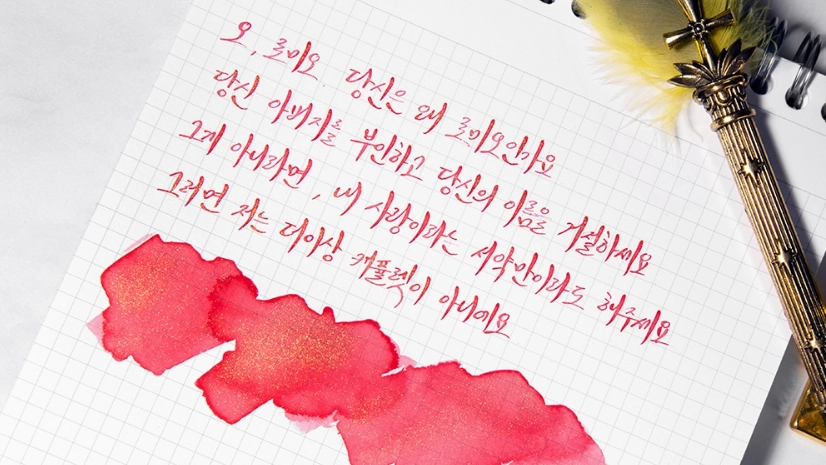 오, 로미오. 당신은 왜 로미오인가요
당신 아버지를 부인하고 당신의 이름을 거절하세요
그게 아니라면, 내 사랑이라는 서약만이라도 해주세요
그러면 저는 더이상 캐플렛이 아니에요